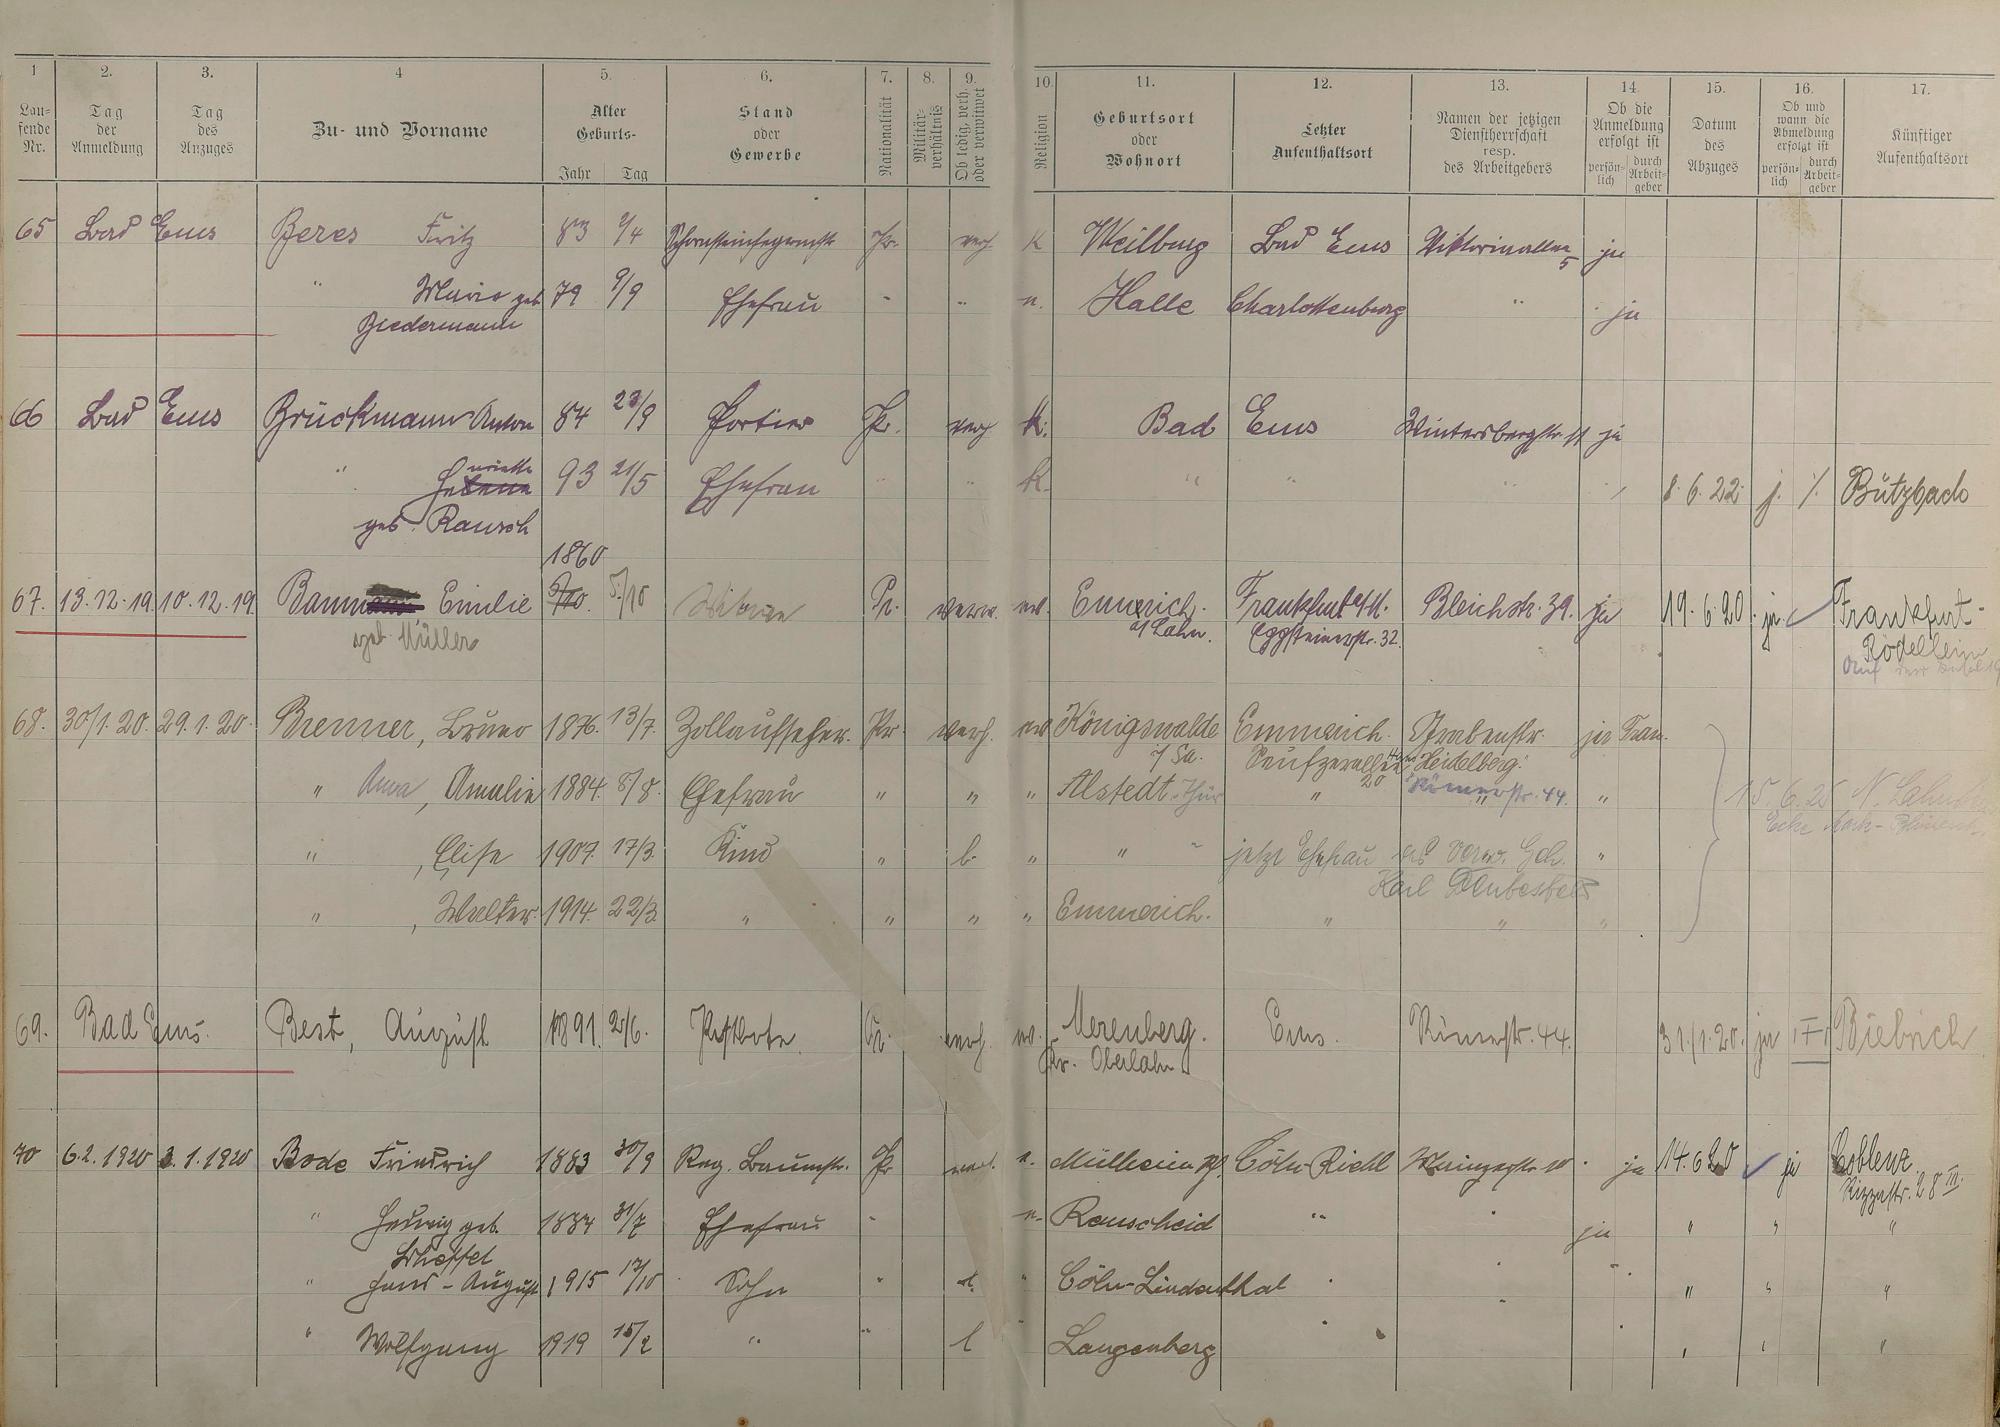 1 2. 3. 4 5. 6. 7. 8. 9. 10 11. 12. 13. 14 15. 16. 17.
Lau-
fende
Nr.
Tag
der
Anmeldung
Tag
des
Anzuges
Zu- und Vorname
Alter
Geburts-
Jahr Tag
Stand
oder
Gewerbe
Nationalität
Militär-
verhältnis
Ob ledig, verh.
oder verwitwet
Religion
Geburtsort
oder
Wohnort
Letzter
Aufenthaltsort
Namen der jetzigen
Dienstherrschaft
resp.
des Arbeitgebers
Ob die
Anmeldung
erfolgt ist
persön-
lich
durch
Arbeit-
geber
Datum
des
Abzuges
Ob und
wann die
Abmeldung
erfolgt ist
persön-
lich
durch
Arbeit-
geber
Künftiger
Aufenthaltsort
65 Bad Ems Beres Fritz 83 9/4 Pr. verh. K Weilburg Bad Ems Viktoriaallee 5 ja
" Marie geb. 79 9/9 Ehefrau " " " Halle Charlottenburg " ja
Biedermann
66 Bad Ems Brückmann Anton 84 23/9 Portier Pr. verh K. Bad Ems Wintersbergstr. 11 ja
" Helene 93 21/5 Ehefrau " " K. " " " 8.6.22 j. ٪ Bützbach
nriette
geb. Rausch
1860
67. 13.12.19. 10.12.19. Baum Emilie 5/10. 5./10 Witwe Pr. verw. ev. Emmerich. Frankfurt a/M. Bleichstr. 39. ja 19.6.20. ja Frankfurt-
geb. Müller a/Lahn. Eppsteinerstr. 32. Rödelheim
68. 30/1.20. 29.1.20. Brenner, Bruno 1876. 13/7. Zollaufseher. Pr. verh. ev Königswalde Emmerich. Grabenstr. ja
i/Sa. Seufzerallee 20 Heidelberg.
" Anna, Amalie 1884. 5/8. Ehefrau " " " Alstedt. Thür " Römerstr. 44. " 15.6.25 N. Lahnstr.
" , Elise 1907. 17/3. Kind " l. " " " jetzt Ehefrau des verw. Geh. "
Karl
" , Walter. 1914. 22/3. " " " " Emmerich. " " "
69. Bad Ems. Best, August 1891. 2/6. Postbote Pr. verh. ev. Merenberg. Ems. Römerstr. 44. 31/1.20. ja Biebrich
Kr. Oberlahn
70 6.2.1920 3.1.1920 Bode Friedrich 1883 30/9 Reg. Baumstr. Pr verh. e. Mülheim Cöln-Riehl Mainzerstr. 10 ja 14.6.20 ja Coblenz
Rizzastr. 28 III.
" Hedwig geb. 1884 31/7 Ehefrau " e. Rauscheid " ja " " "
Scheffel
" Hans-August 1915 17/10 Sohn " l. " Cöln-Lindenthal " " "
" Wolfgang 1919 15/2 " " l Langenberg " " "